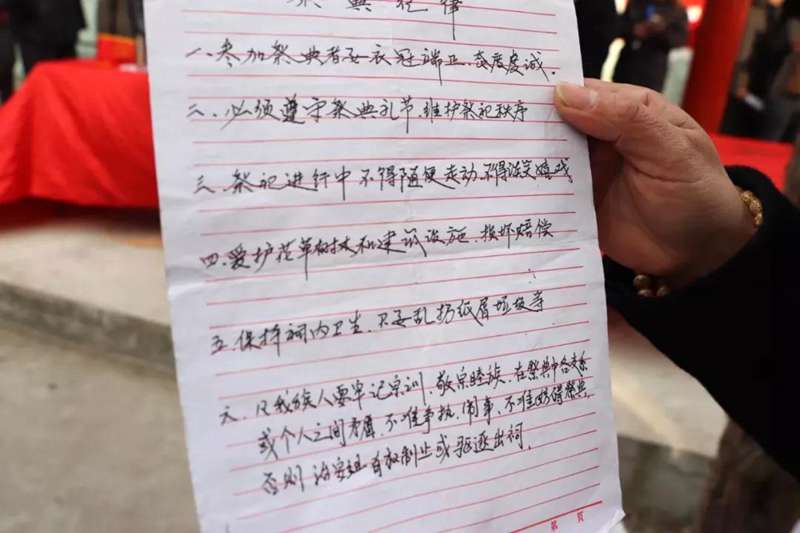 祭典纪律
一、参加祭典者要衣冠端正、态度虔诚.
二、必须遵守祭典礼节、维护祭祀秩序
三、祭祀进行中不得随便走动、不得谈笑嬉戏
四、爱护花草树木和建筑设施、损坏赔偿
五、保持祠内卫生、不要乱扔纸屑垃圾等
六、凡我族人要牢记宗训、敬宗睦族、在祭典中各支系
或个人之间矛盾、不准争执、闹事、不准妨碍祭典,
否则治安组有权制止或驱逐出祠.
第 页